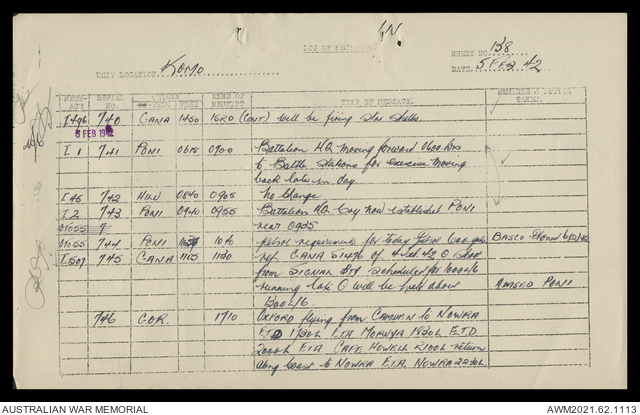 LOG OF MESSAGES
SHEET NO. 158
UNIT LOCATION. KOMO
DATE. 5 FEB 42
SERIAL NO. TIME TIME OF RECEIPT TEXT OF MESSAGE. TAKEN.
I496 740 CANA 1450 1520 (cont) will be firing star shells.
6 FEB 1942
I1 741 PONI 0615 0700 Battalion HQ moving forward 0600 hrs
to Battle Stations for exercise moving
back late in day.
742 0840 0905 No change
I2 743 PONI 0940 0955 Battalion HQ now established PONI
near 0935
01055 7
01055 744 PONI 1040 petrol requirements for today
I507 745 CANA 1155 1130 ref. CANA of 4 Feb 42 O shoot
from SIGNAL STN scheduled for
running late O will be about ADVISED PONI
746 COR. 1710 OXFORD flying from CAMDEN to NOWRA
E.T.D. 1730L E.T.A. MORUYA 1830L E.T.D
2000L E.T.A CAPE HOWELL 2100L return
along coast to NOWRA E.T.A. NOWRA 2230L.
AUSTRALIAN WAR MEMORIAL
AWM2021.62.1113